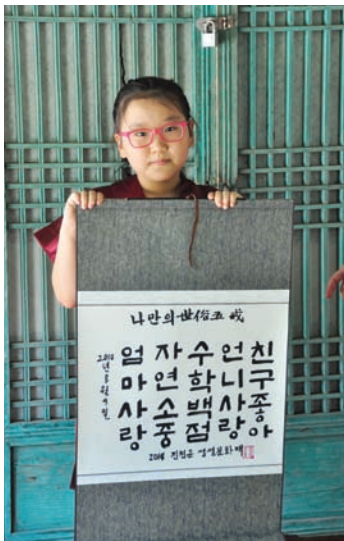 나만의 世俗五戒
친구좋아
언니사랑
수학백점
자연소중
엄마사랑
2014년 8월
2014 진천군 생생문화재